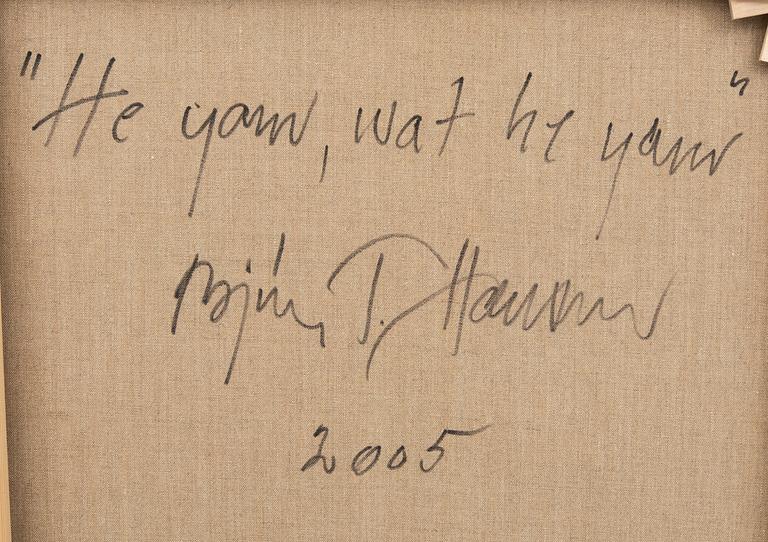 "He yawr, wat he yawr"
Björn T. Hansson
2005